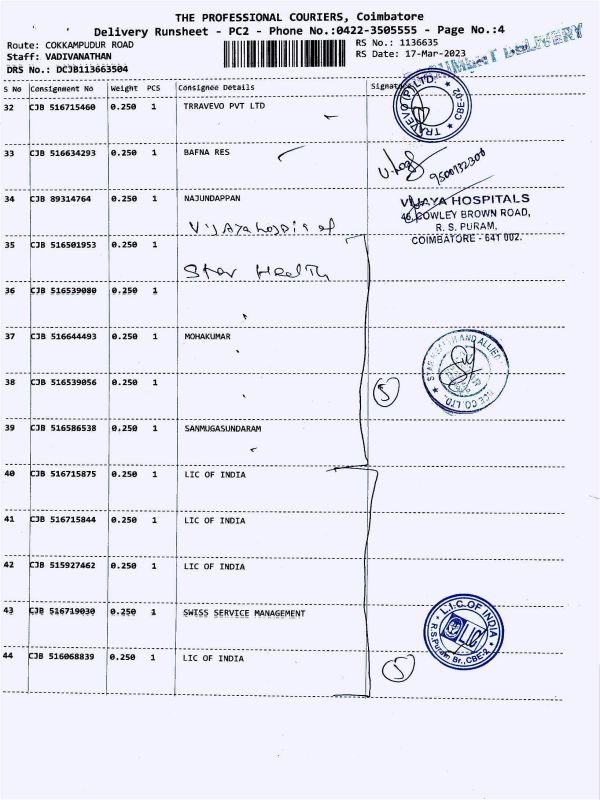 THE PROFESSIONAL COURIERS, Coimbatore
Delivery Runsheet - PC2 - Phone No.:0422-3505555 - Page No.:4
Route: COKKAMPUDUR ROAD
RS No.: 1136635
Staff: VADIVANATHAN
RS Date: 17-Mar-2023
DRS No.: DCJB113663504
DELIVERY
S No Consignment No Weight PCS Consignee Details Signature
32 CJB 516715460 0.250 1 TRRAVEVO PVT LTD
TRAVEVO (P) LTD. ★ CBE-02 ★
33 CJB 516634293 0.250 1 BAFNA RES
9500932300
34 CJB 89314764 0.250 1 NAJUNDAPPAN
Vijaya hospital
VIJAYA HOSPITALS
46, COWLEY BROWN ROAD,
R. S. PURAM,
COIMBATORE - 641 002.
35 CJB 516501953 0.250 1
Star Health
36 CJB 516539080 0.250 1
37 CJB 516644493 0.250 1 MOHAKUMAR
38 CJB 516539056 0.250 1
5
39 CJB 516586538 0.250 1 SANMUGASUNDARAM
40 CJB 516715875 0.250 1 LIC OF INDIA
41 CJB 516715844 0.250 1 LIC OF INDIA
42 CJB 515927462 0.250 1 LIC OF INDIA
43 CJB 516719030 0.250 1 SWISS SERVICE MANAGEMENT
L.I.C.OF INDIA
LIC
R.S.Puram Br., CBE-2
44 CJB 516068839 0.250 1 LIC OF INDIA
5